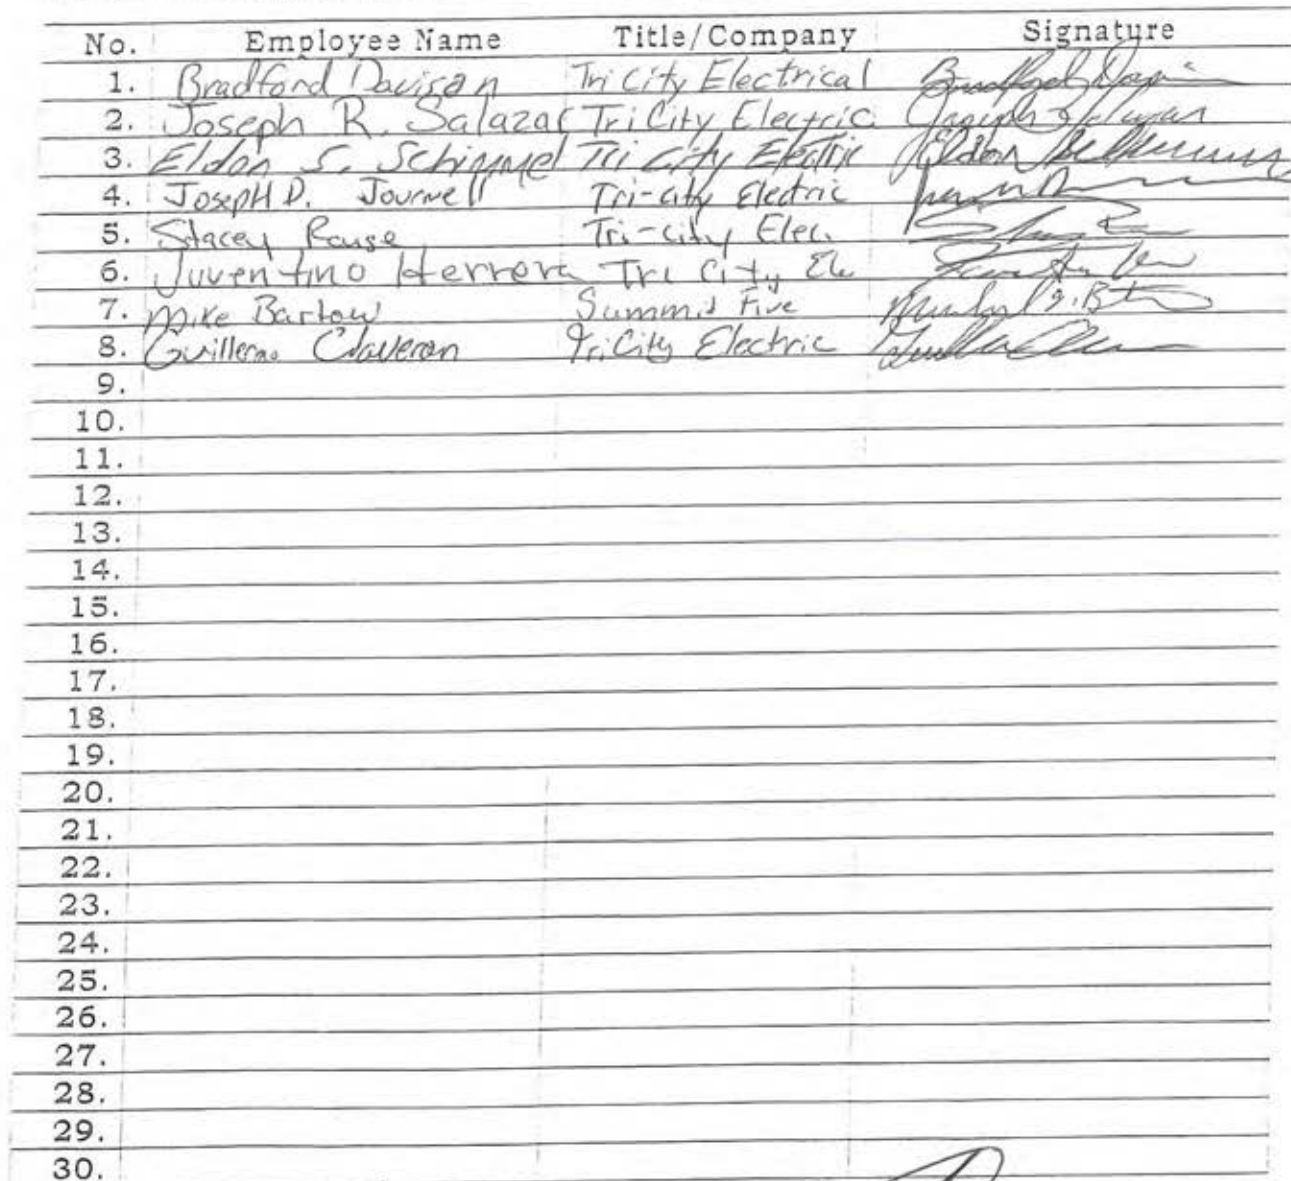 No. Employee Name Title/Company Signature
1. Bradford Davison Tri City Electrical
2. Joseph R. Salazar Tri City Electric
3. Eldon S. Schimmel Tri City Electric Eldon
4. JosepH D. Journell Tri-city Electric
5. Stacey Rouse Tri-city Elec.
6. Juventino Herrera Tri City Ele
7. Mike Bartow Summit Five
8. Guillermo Tri City Electric
9.
10.
11.
12.
13.
14.
15.
16.
17.
18.
19.
20.
21.
22.
23.
24.
25.
26.
27.
28.
29.
30.